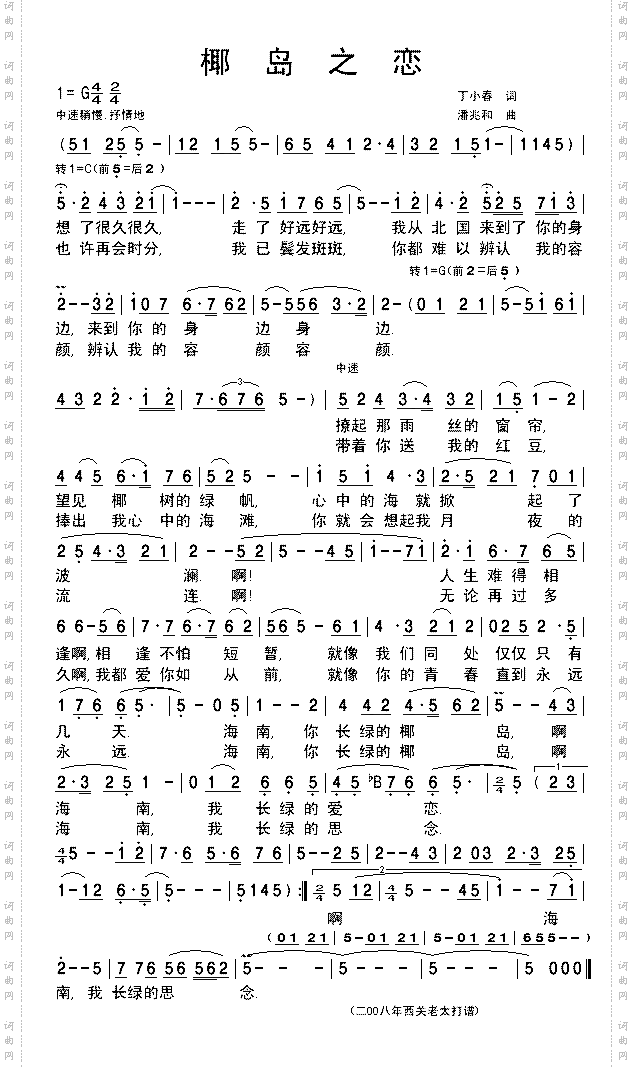 椰岛之恋
1=G 4/4 2/4
丁小春 词
中速稍慢.抒情地
潘兆和 曲
(51 255-|12 155-|65 412·4|32 151-|1145)|
转1=C(前5=后2)
5·243 21|1---|2·51765|5--12|4·2 525 713|
想了很久很久, 走了好远好远, 我从北国来到了你的身
也许再会时分, 我已鬓发斑斑, 你都难以辨认我的容
转1=G(前2=后5)
2--32|107 6·762|5-556 3·2|2-(01 21|5-5161|
边,来到你的身 边身 边.
颜,辨认我的容 颜容 颜.
中速
4322·12|7·676 5-)|524 3·4 32|151-2|
撩起那雨丝的窗帘,
带着你送我的红豆,
445 6·1 76|525--|151 4·3|2·521 701|
望见椰树的绿帆, 心中的海就掀起了
捧出我心中的海滩, 你就会想起我月夜的
254·3 21|2--52|5--45|1--71|2·1 6·7 65|
波澜.啊! 人生难得相
流连.啊! 无论再过多
66-56|7·7 6·7 62|56--2|4·3 421|0252·5|
逢啊,相逢不怕短暂, 就像我们同处仅仅只有
久啊,我都爱你如从前, 就像你的青春直到永远
176 65·|5-05|1--2|442 4·5 62|5--43|
几天. 海南,你长绿的椰岛,啊
永远. 海南,你长绿的椰岛,啊
2·3 25 1-|012 665|45 ♭B766|65·-|2/4 5 (23|
海南,我长绿的爱恋.
海南,我长绿的思念.
4/4 5--12|7·65·67|6--|5--25|2--43|203 2·3 25|
1-12 6·5|5--|5145):‖2/4 512|4/4 5--45|1--71|
啊 海
(01 21|5-01 21|5-01 21|655--)
2--5|776 56 562|5---|5---|5---|5000‖
南,我长绿的思念.
(二00八年西关老太打谱)
词曲网